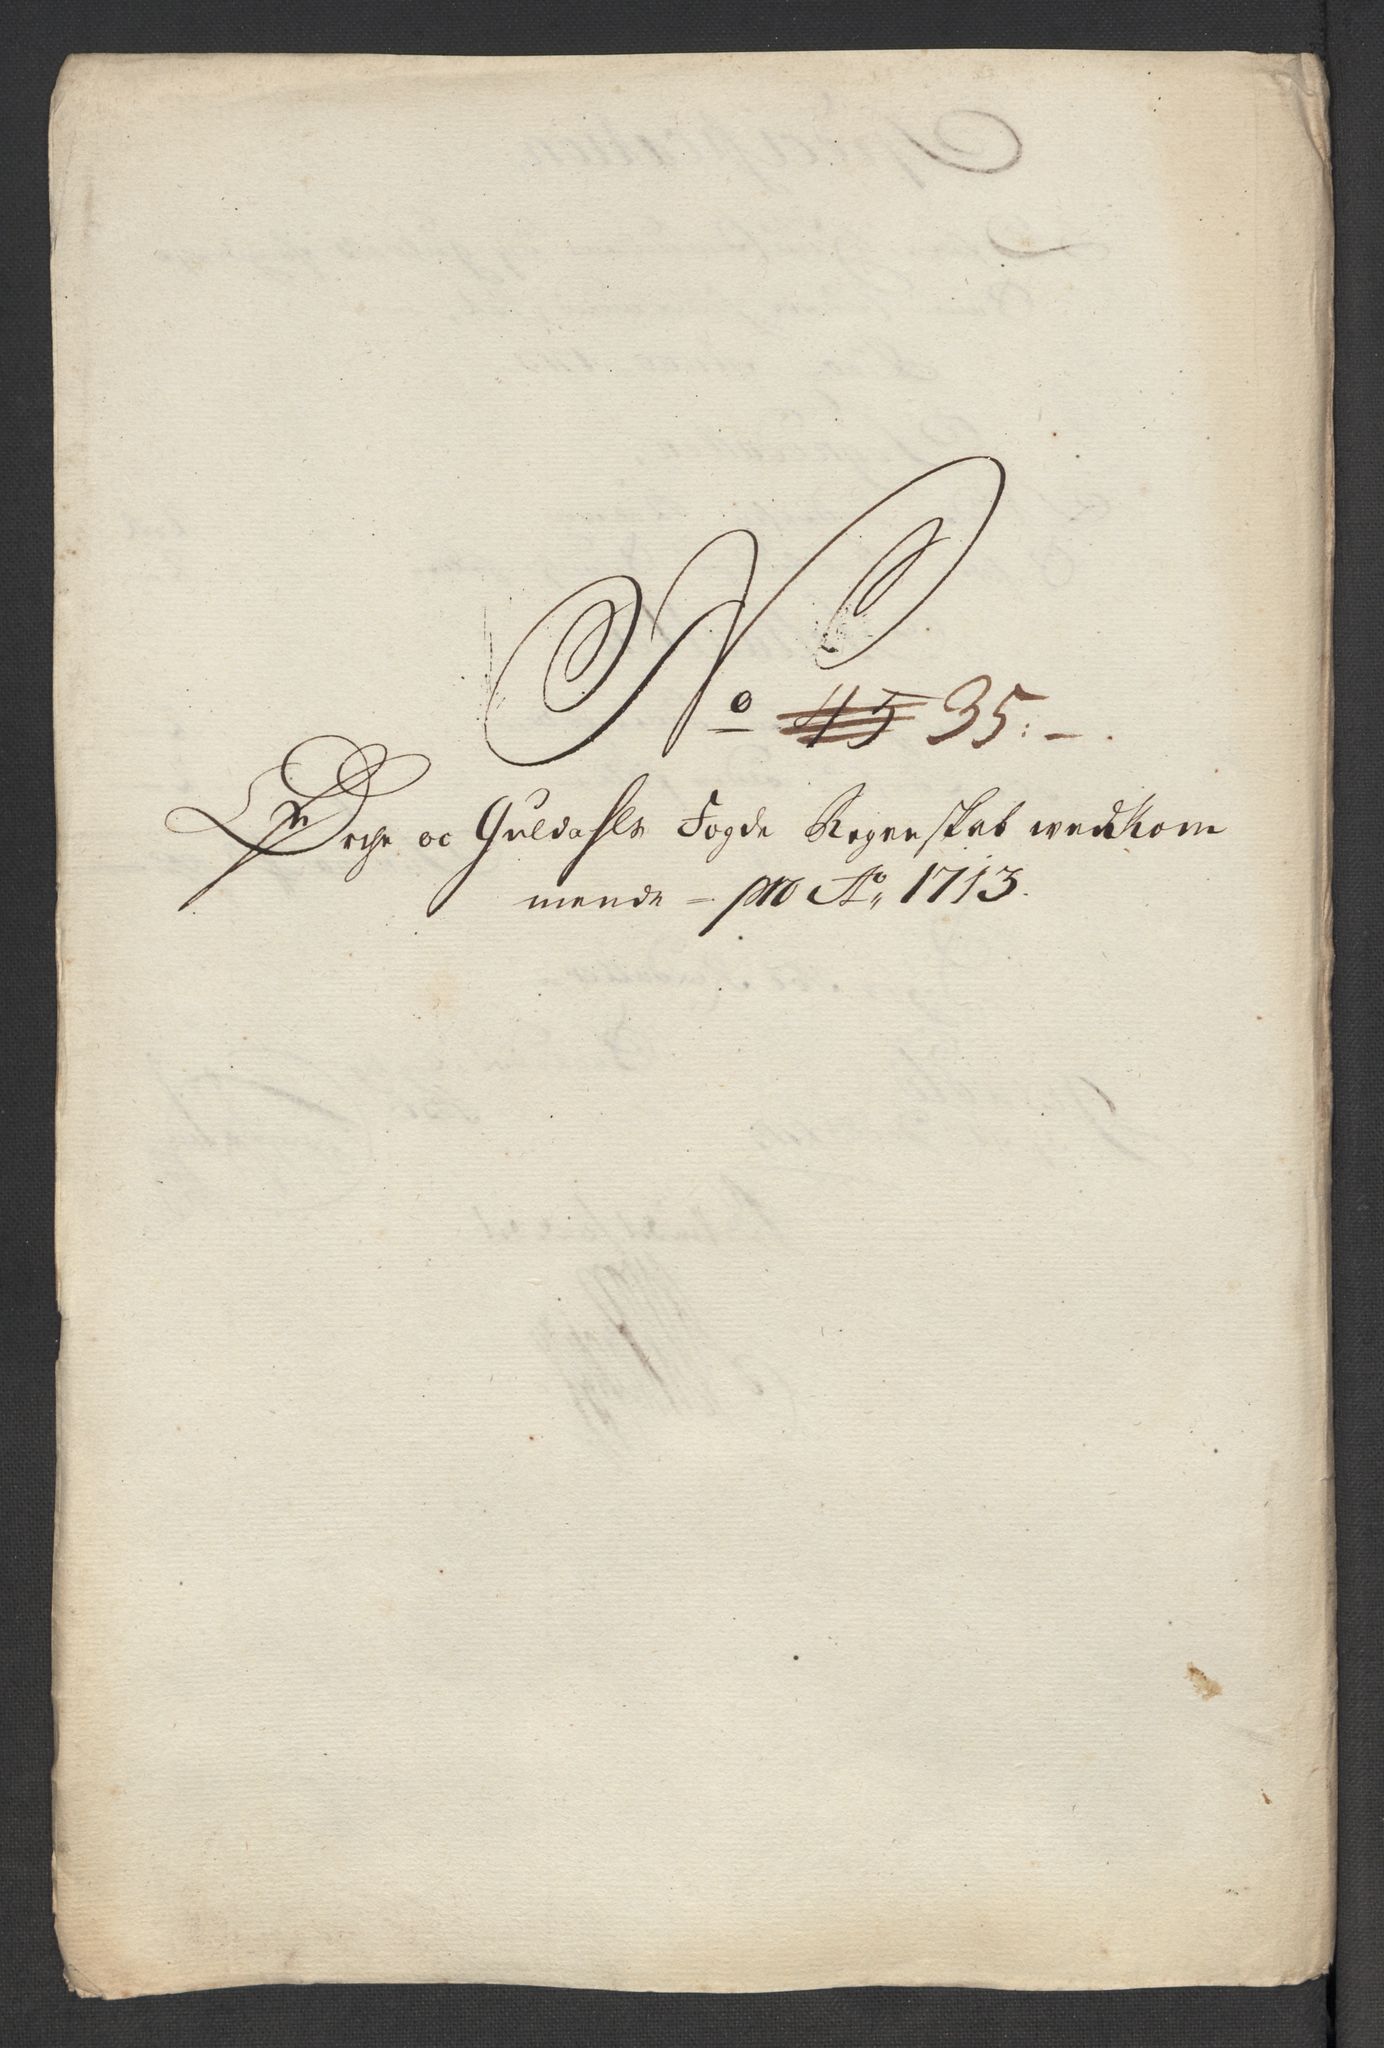 No 45 35:-.
Orche oc Guldahls Fogde Regenskab wedkom
mende - pro Ao, 1713.